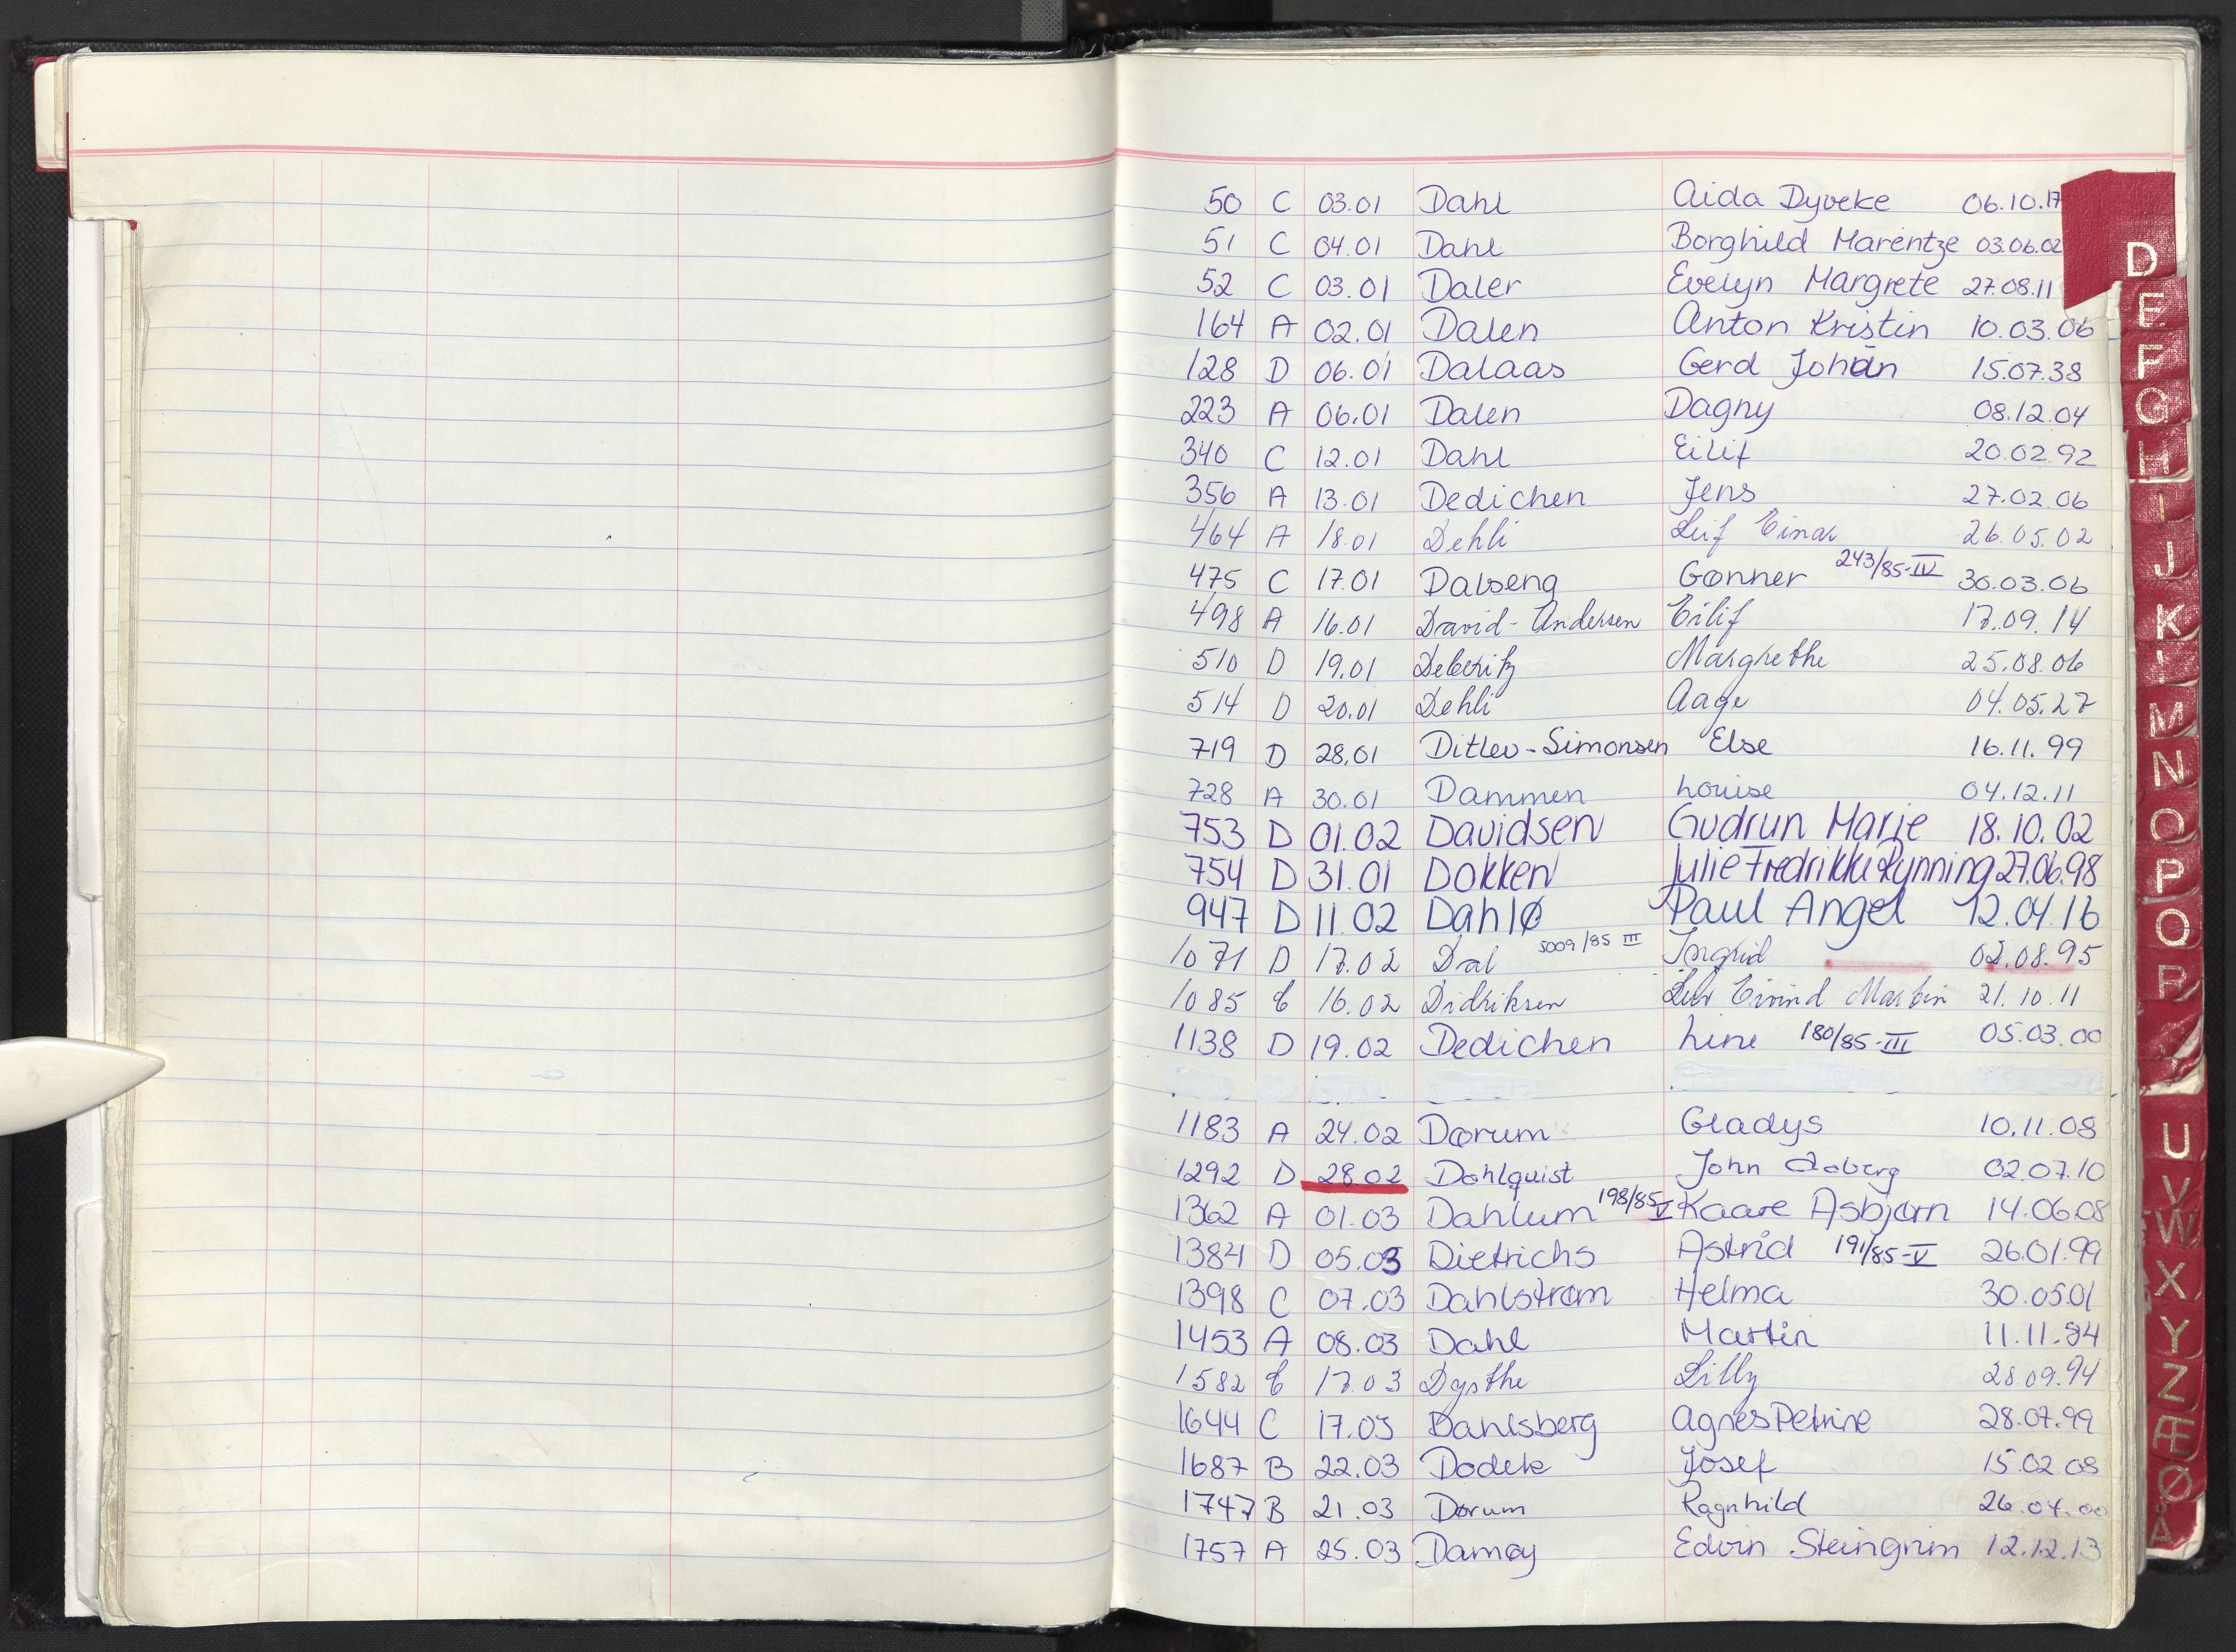 50 C 03.01 Dahl Aida Dyveke 06.10.17
51 C 04.01 Dahl Borghild Marentze 03.06.02
52 C 03.01 Daler Evelyn Margrete 27.08.11
164 A 02.01 Dalen Anton Kristin 10.03.06
128 D 06.01 Dalaas Gerd Johan 15.07.38
223 A 06.01 Dalen Dagny 08.12.04
340 C 12.01 Dahl Eilif 20.02.92
356 A 13.01 Dedichen Jens 27.02.06
464 A 18.01 Dehli Leif Einar 26.05.02
475 C 17.01 Dalseng Gønner 243/85-IV 30.03.06
498 A 16.01 David-Andersen Eilif 17.09.14
510 D 19.01 Margrethe 25.08.06
514 D 20.01 Dehli Aage 04.05.27
719 D 28.01 Ditlev-Simonsen Else 16.11.99
728 A 30.01 Dammen Louise 04.12.11
753 D 01.02 Davidsen Gudrun Marie 18.10.02
754 D 31.01 Dokken Julie Fredrikke Rynning 27.06.98
947 D 11.02 Dahlø Paul Angel 12.04.16
1071 D 17.02 Dal 5009/85 III Ingrid 02.08.95
1085 C 16.02 Didriksen Eivind Martin 21.10.11
1138 D 19.02 Dedichen Line 180/85-III 05.03.00
1183 A 24.02 Dørum Gladys 10.11.08
1292 D 28.02 Dahlquist John Aaberg 02.07.10
1362 A 01.03 Dahlum 198/85 V Kaare Asbjørn 14.06.08
1384 D 05.03 Dietrichs Astrid 191/85-V 26.01.99
1398 C 07.03 Dahlstrøm Helma 30.05.01
1453 A 08.03 Dahl Martin 11.11.84
1582 C 17.03 Dysthe Lilly 28.09.94
1644 C 17.03 Dahlsberg Agnes Petrine 28.07.99
1687 B 22.03 Dodek Josef 15.02.08
1747 B 21.03 Dørum Ragnhild 26.04.00
1757 A 25.03 Damøy Edvin Steingrim 12.12.13
D
E
F
G
H
I
J
K
L
M
N
O
P
Q
R
U
V
W
X
Y
Z
Æ
Ø
Å